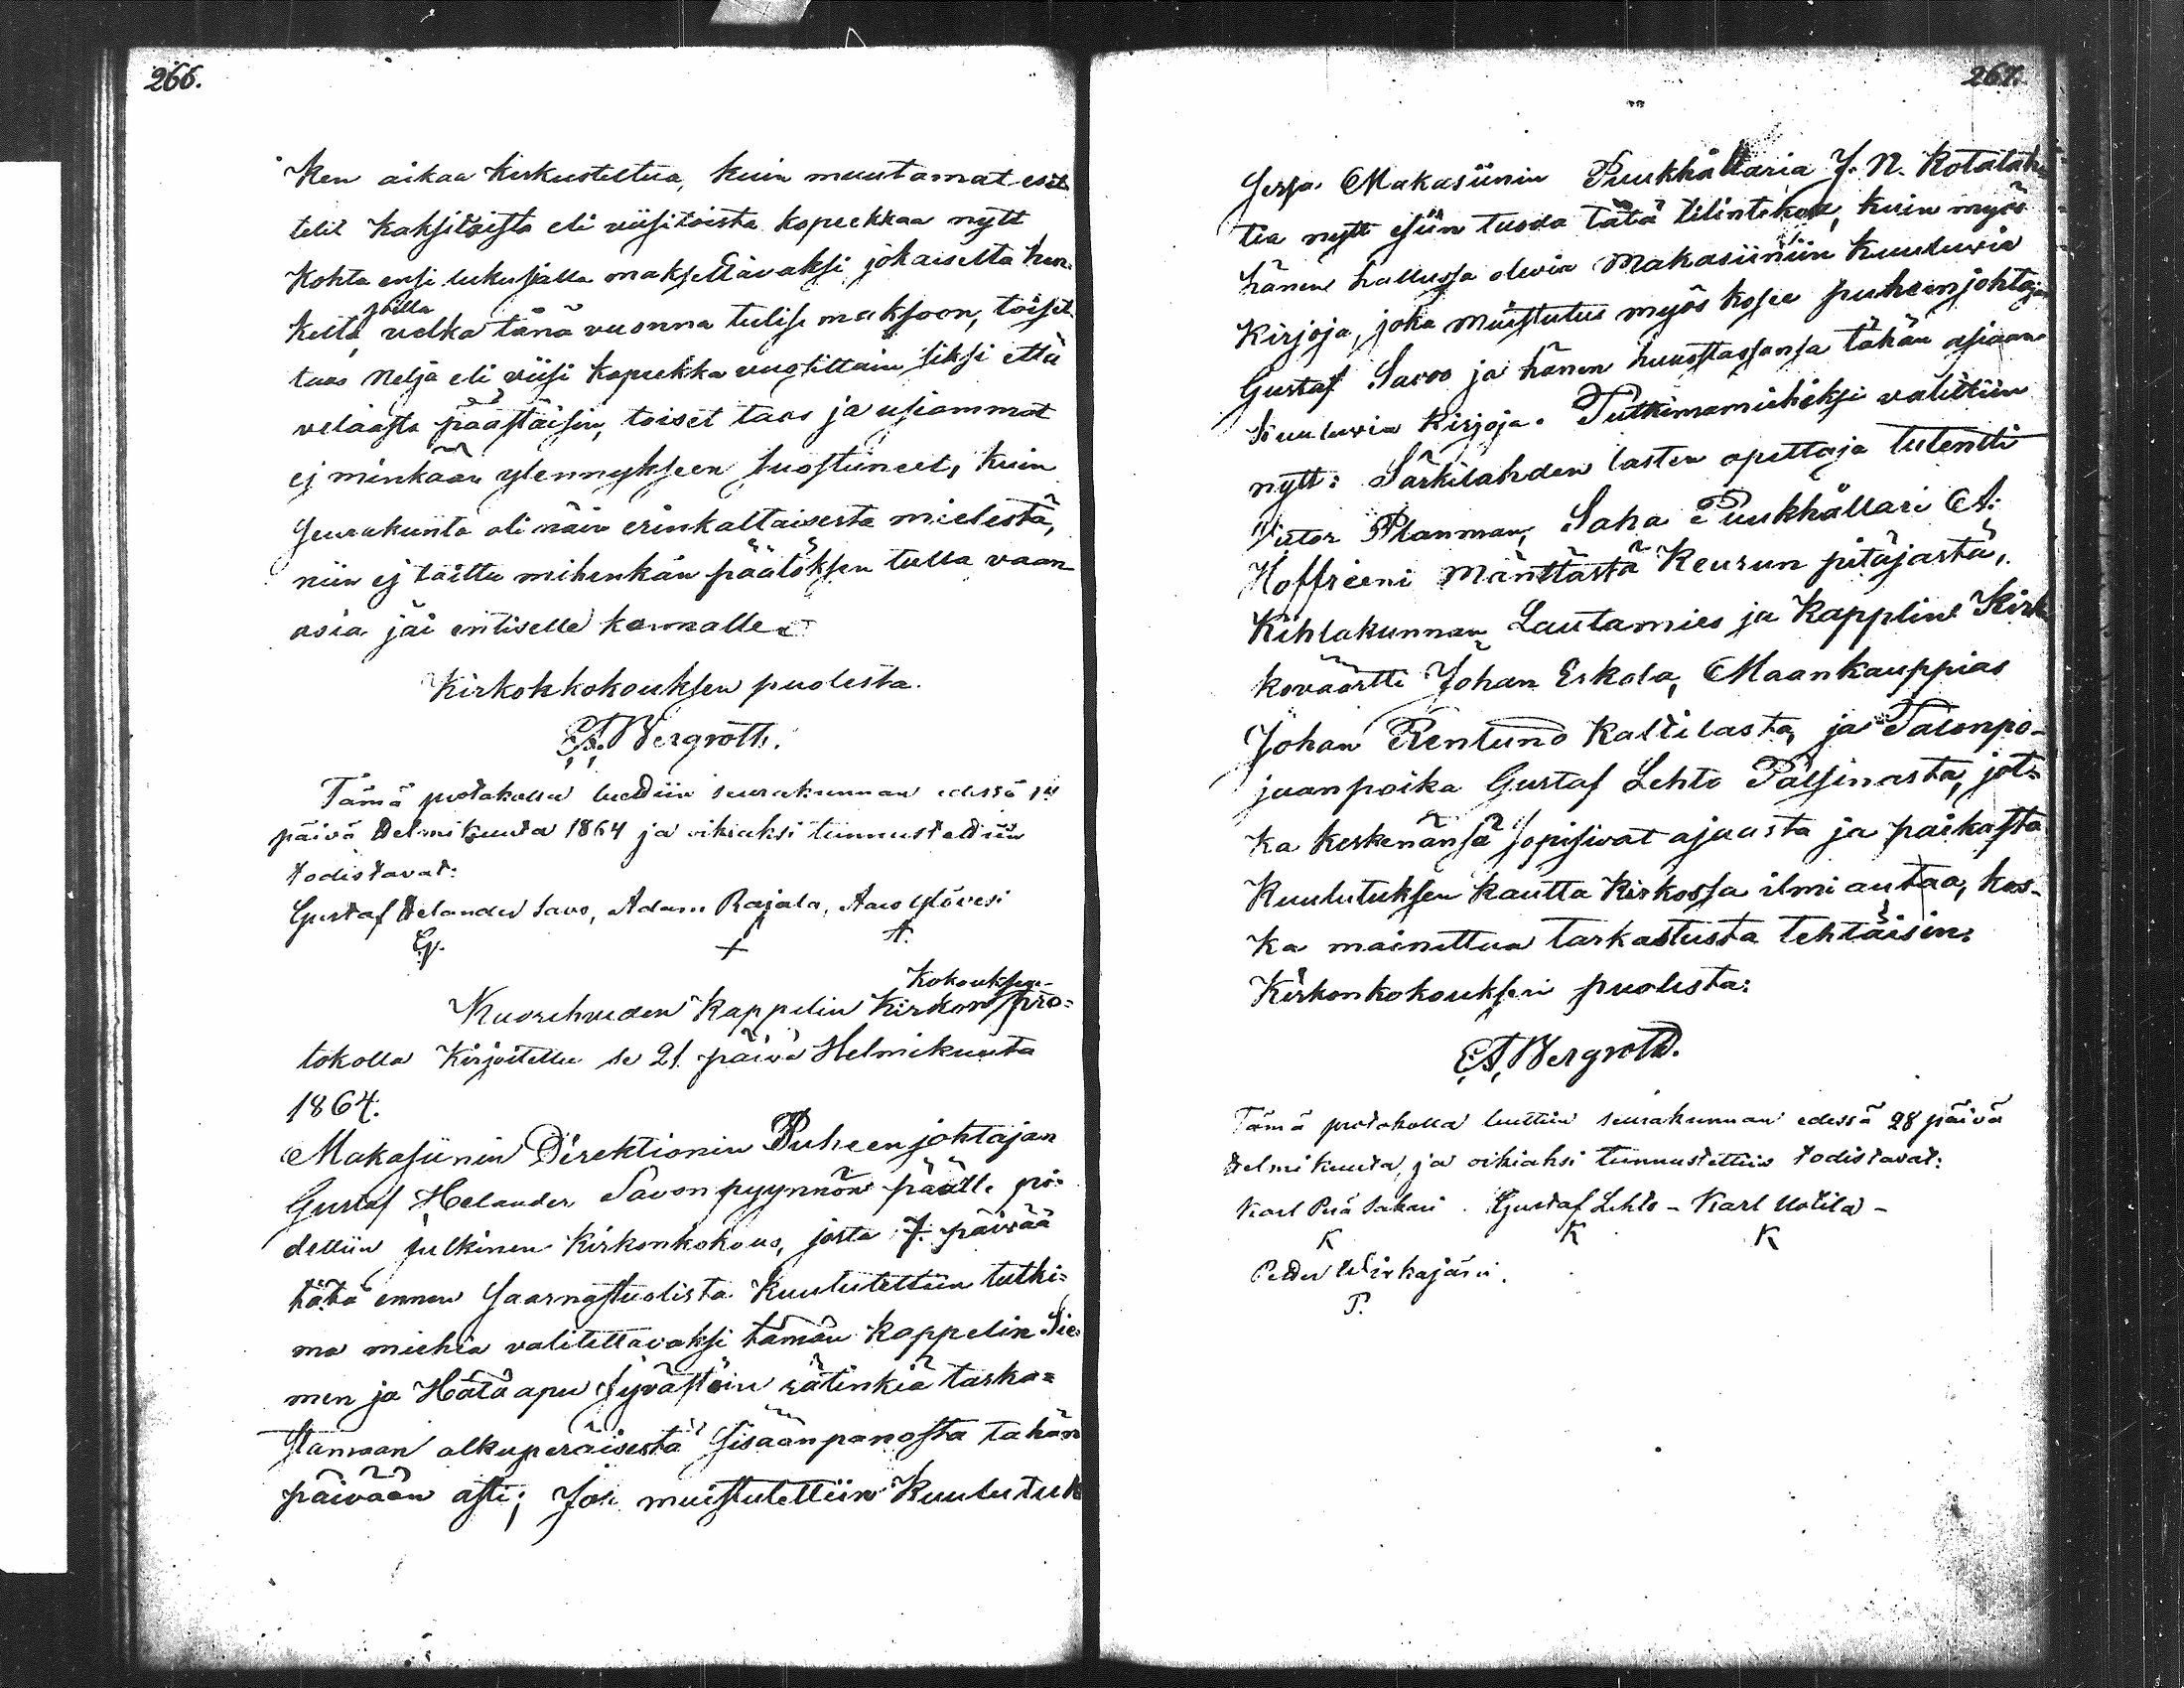 266.
Ken aikaa keskusteltua, kuin muutamat esit-
telit kaksitoista eli viisitoista kopeekkaa nytt
kohta ensi lukusialla maksettavaksi jokaiselta hen-
joilla
kelta velka tänä vuonna tulisi maksoon, toiset
taas neljä eli viisi kopeekka vuosittain siksi että
velaasta päästäisin, toiset taas ja usiammat
ej minkään ylennykseen suostuneet, kuin
seurakunta oli näin erinkaltaisesta mielestä,
niin ej taittu mihenkän päätöksen tulla vaan
asia jäi entiselle kannalle.
Kirkokkokouksen puolesta.
E. A. Bergroth.
Tämä protokolla luettiin seurakunnan edessä 14
päivä Helmikuuta 1864 ja oikiaksi tunnustettiin
todistavat:
Gustaf Helander Savo, Adam Rajala, Aaro Ylövesi
G. + A.
Kokouksen-
Kuorehveden Kappelin Kirkon pro=
tokolla Kirjoitettu se 21 päivä Helmikuuta
1864.
Makasiinin Direktionin Puheenjohtajan
Gustaf Helander Savon pyynnön päälle pi=
dettiin julkinen Kirkonkokous, josta 7. päivää
tätä ennen Saarnastuolista Kuulutettiin tutki=
ma miehiä valitettavaksi tämän Kappelin Sie-
men ja Hätäapu Jyvästöin rätinkiä tarka=
stamaan alkuperäisestä sisäänpanosta tahän
päivään asti; Jos muistutettiin Kuulutuk
267.
sessa Makasiinin Puukhållaria J. N. Kotalah-
tia nytt esiin tuoda tätä tilintekoa, kuin myös
hänen hallussa olevia Makasiiniin Kuuluvia
Kirjoja, joka muistutus myös koskee puheenjohtajan
Gustaf Savoo ja hänen huostassansa tähän asiaan
Kuuluvia Kirjoja. Tutkimamieheksi valittiin
nytt: Särkilahden lasten opettaja tutentti
Victor Planman, Saha Puukhållari A:
Hoffreeni Mänttästä Keurun pitäjästä,
Kihlakunnan Lautamies ja Kapplin Kirk
kovääritti Johan Eskola, Maankauppias
Johan Renlund Kaltilasta, ja Talonpo-
jaanpoika Gustaf Lehto Pälsinasta, jot=
ka keskenänsä sopisivat ajaasta ja paikasta
Kuulutuksen kautta Kirkossa ilmi antaa, kos-
ka mainittua tarkastusta tehtäisin.
Kirkonkokouksen puolesta:
E. A. Bergroth.
Tämä protokolla luettiin seurakunnan edessä 28 päivä
Helmikuuta ja oikiaksi tunnustettiin todistavat:
Karl Perä Sakari. Gustaf Lehto - Karl Uotila -
K K K
Petter Wirkajärvi.
P.